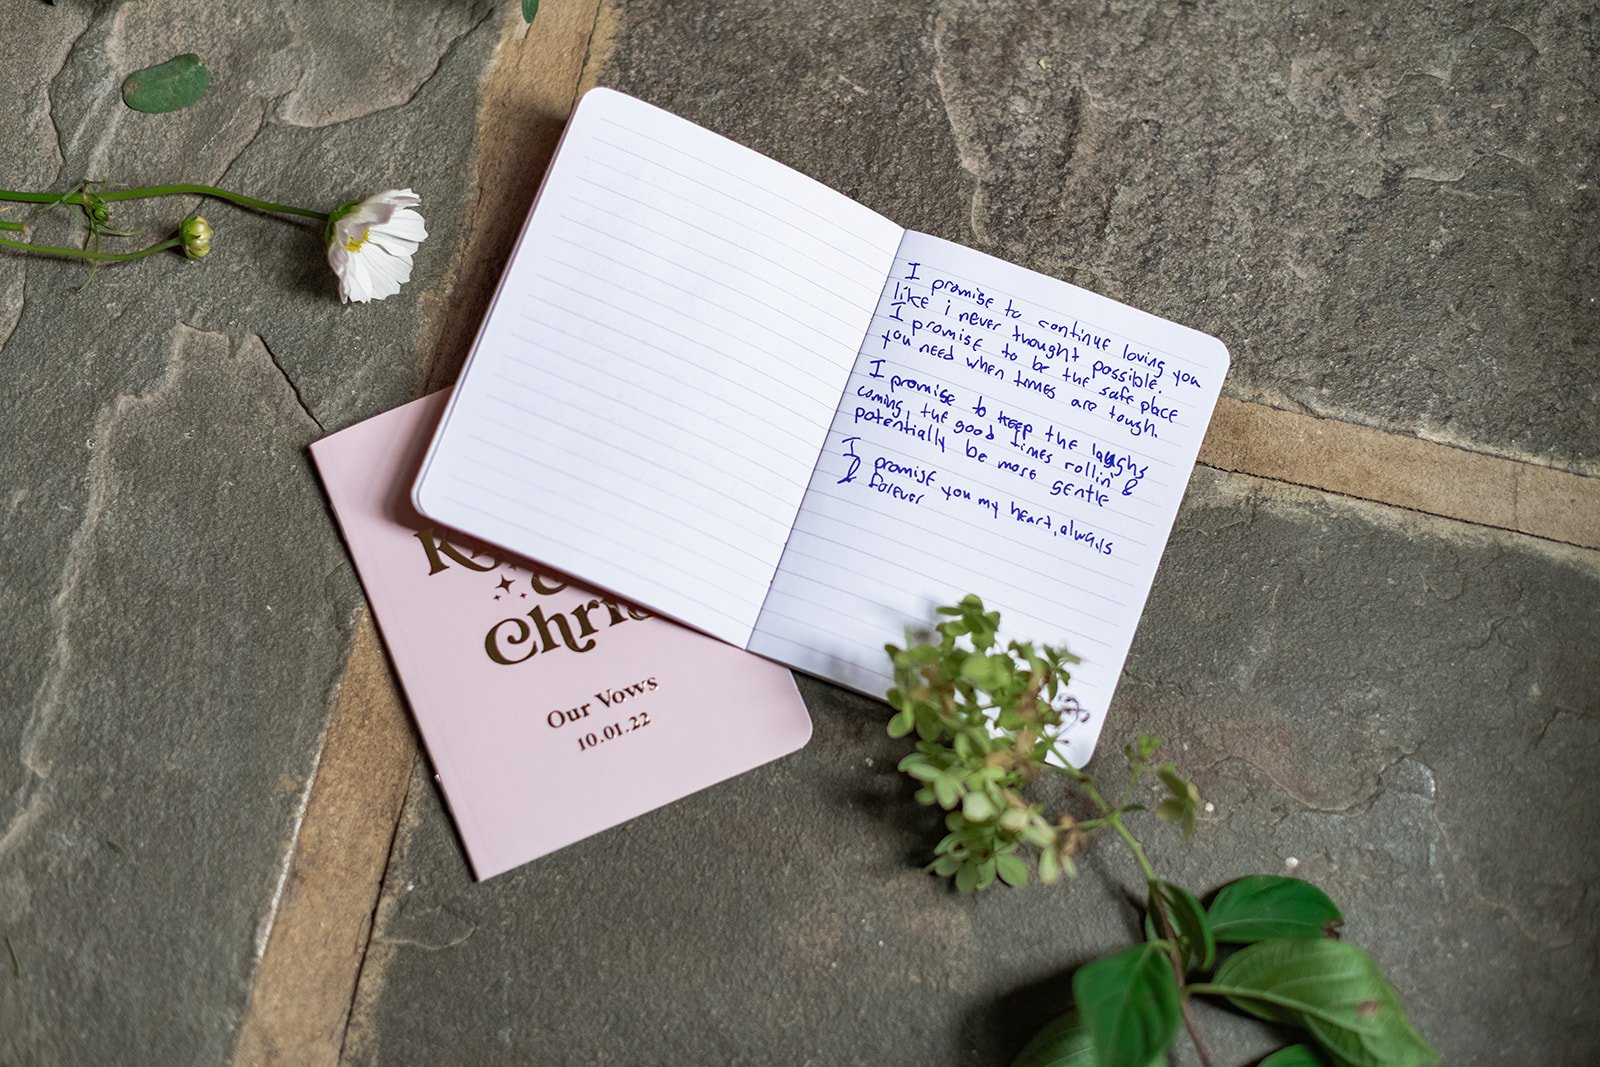 I promise to continue loving you
like i never thought possible.
I promise to be the safe place
you need when times are tough.
I promise to keep the laughs
coming, the good times rollin' &
potentially be more gentle
I promise you my heart, always
& forever
Our Vows
10.01.22